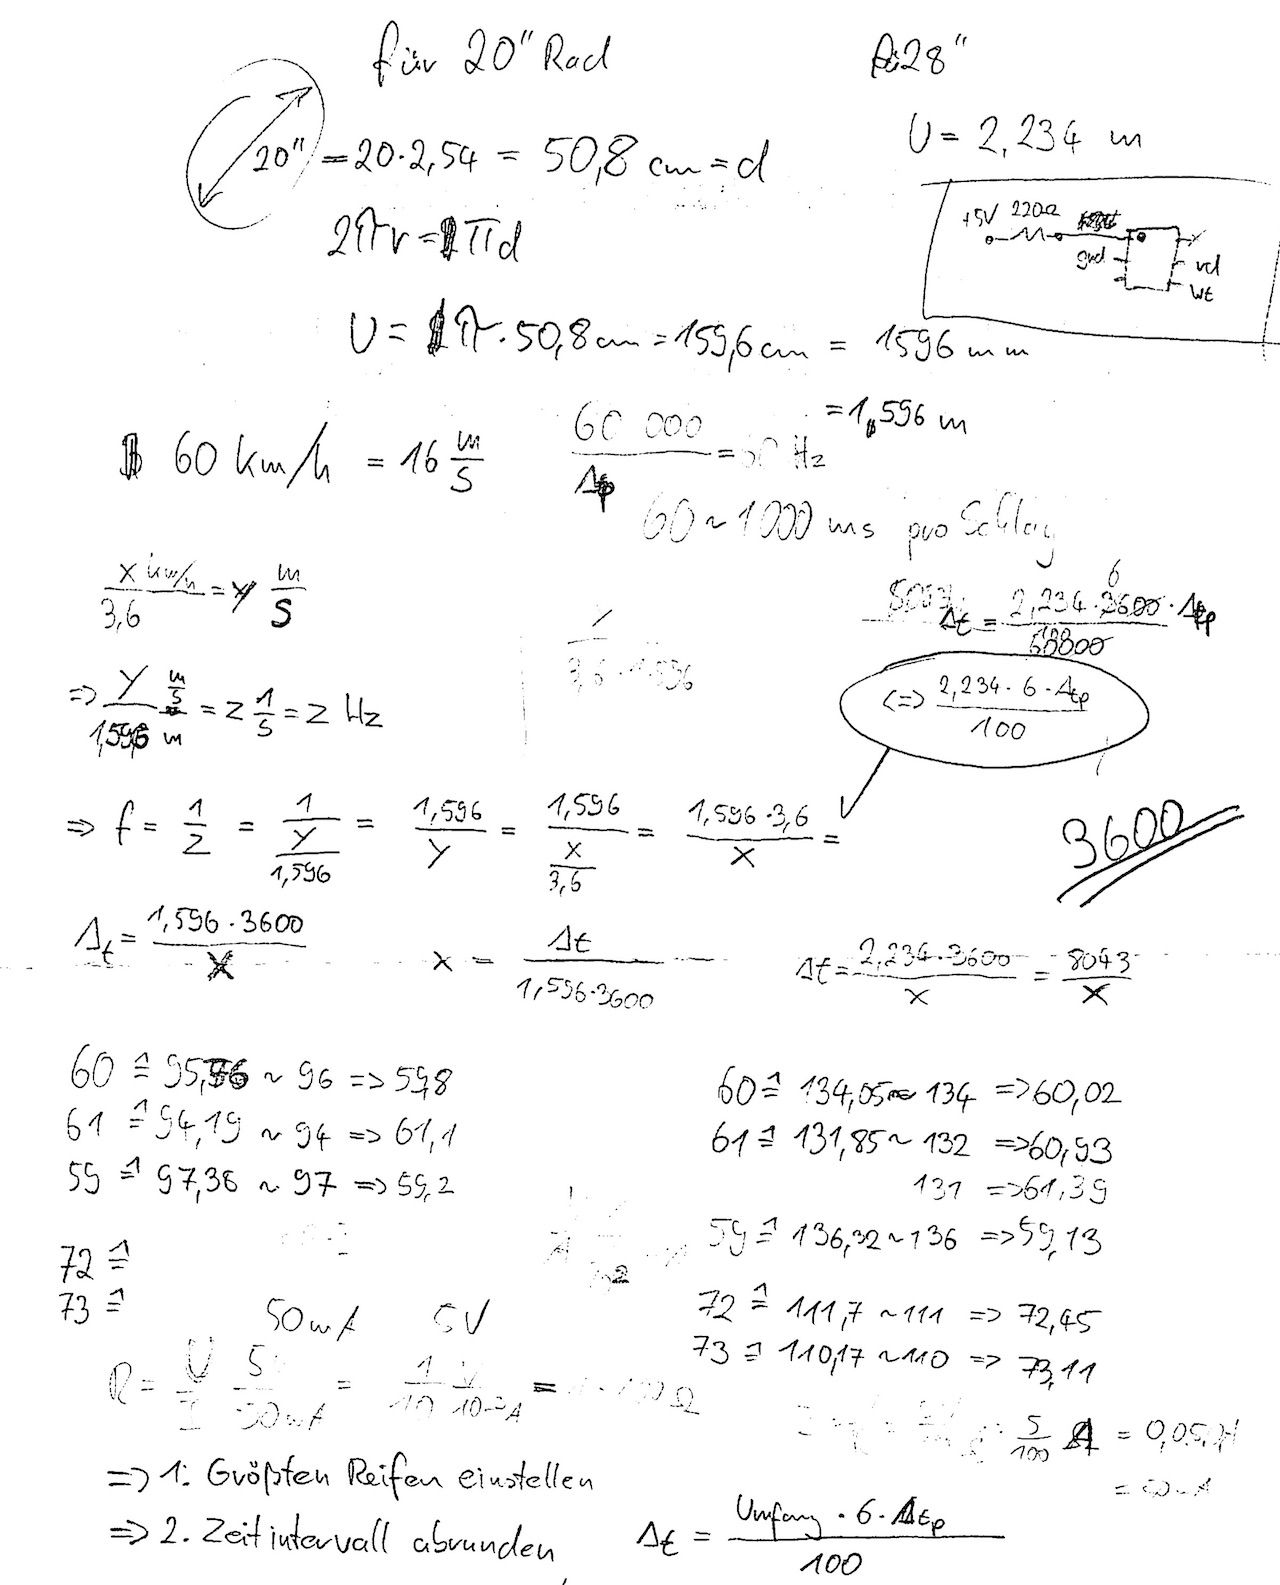 für 20" Rad
28"
20" = 20·2,54 = 50,8 cm = d
U = 2,234 m
2πr = πd
+5V 220Ω
gnd
rd
wt
U = π·50,8 cm = 159,6 cm = 1596 mm
= 1,596 m
60 km/h = 16 m/s
60 000 / Δtp = 60 Hz
60 ~ 1000 ms pro Schlag
x km/h / 3,6 = y m/s
Δt = 2,234·6·Δtp / 100
=> y m/s / 1,596 m = z 1/s = z Hz
<=> 2,234·6·Δtp / 100
=> f = 1/z = 1 / (y / 1,596) = 1,596 / y = 1,596 / (x / 3,6) = 1,596·3,6 / x =
3600
Δt = 1,596·3600 / x
x = Δt / 1,596·3600
Δt = 2,234·3600 / x = 8043 / x
60 ≙ 95,76 ~ 96 => 59,8
61 ≙ 94,19 ~ 94 => 61,1
59 ≙ 97,36 ~ 97 => 59,2
72 ≙
73 ≙
60 ≙ 134,05 ~ 134 => 60,02
61 ≙ 131,85 ~ 132 => 60,93
131 => 61,39
59 ≙ 136,32 ~ 136 => 59,13
72 ≙ 111,7 ~ 111 => 72,45
73 ≙ 110,17 ~ 110 => 73,11
50mA 5V
R = U/I 5 / 50mA = 1/10 V / 10-3A = 100 Ω
5/100 A = 0,05 A
= 50mA
=> 1. Größten Reifen einstellen
=> 2. Zeitintervall abrunden
Δt = Umfang · 6 · Δtp / 100